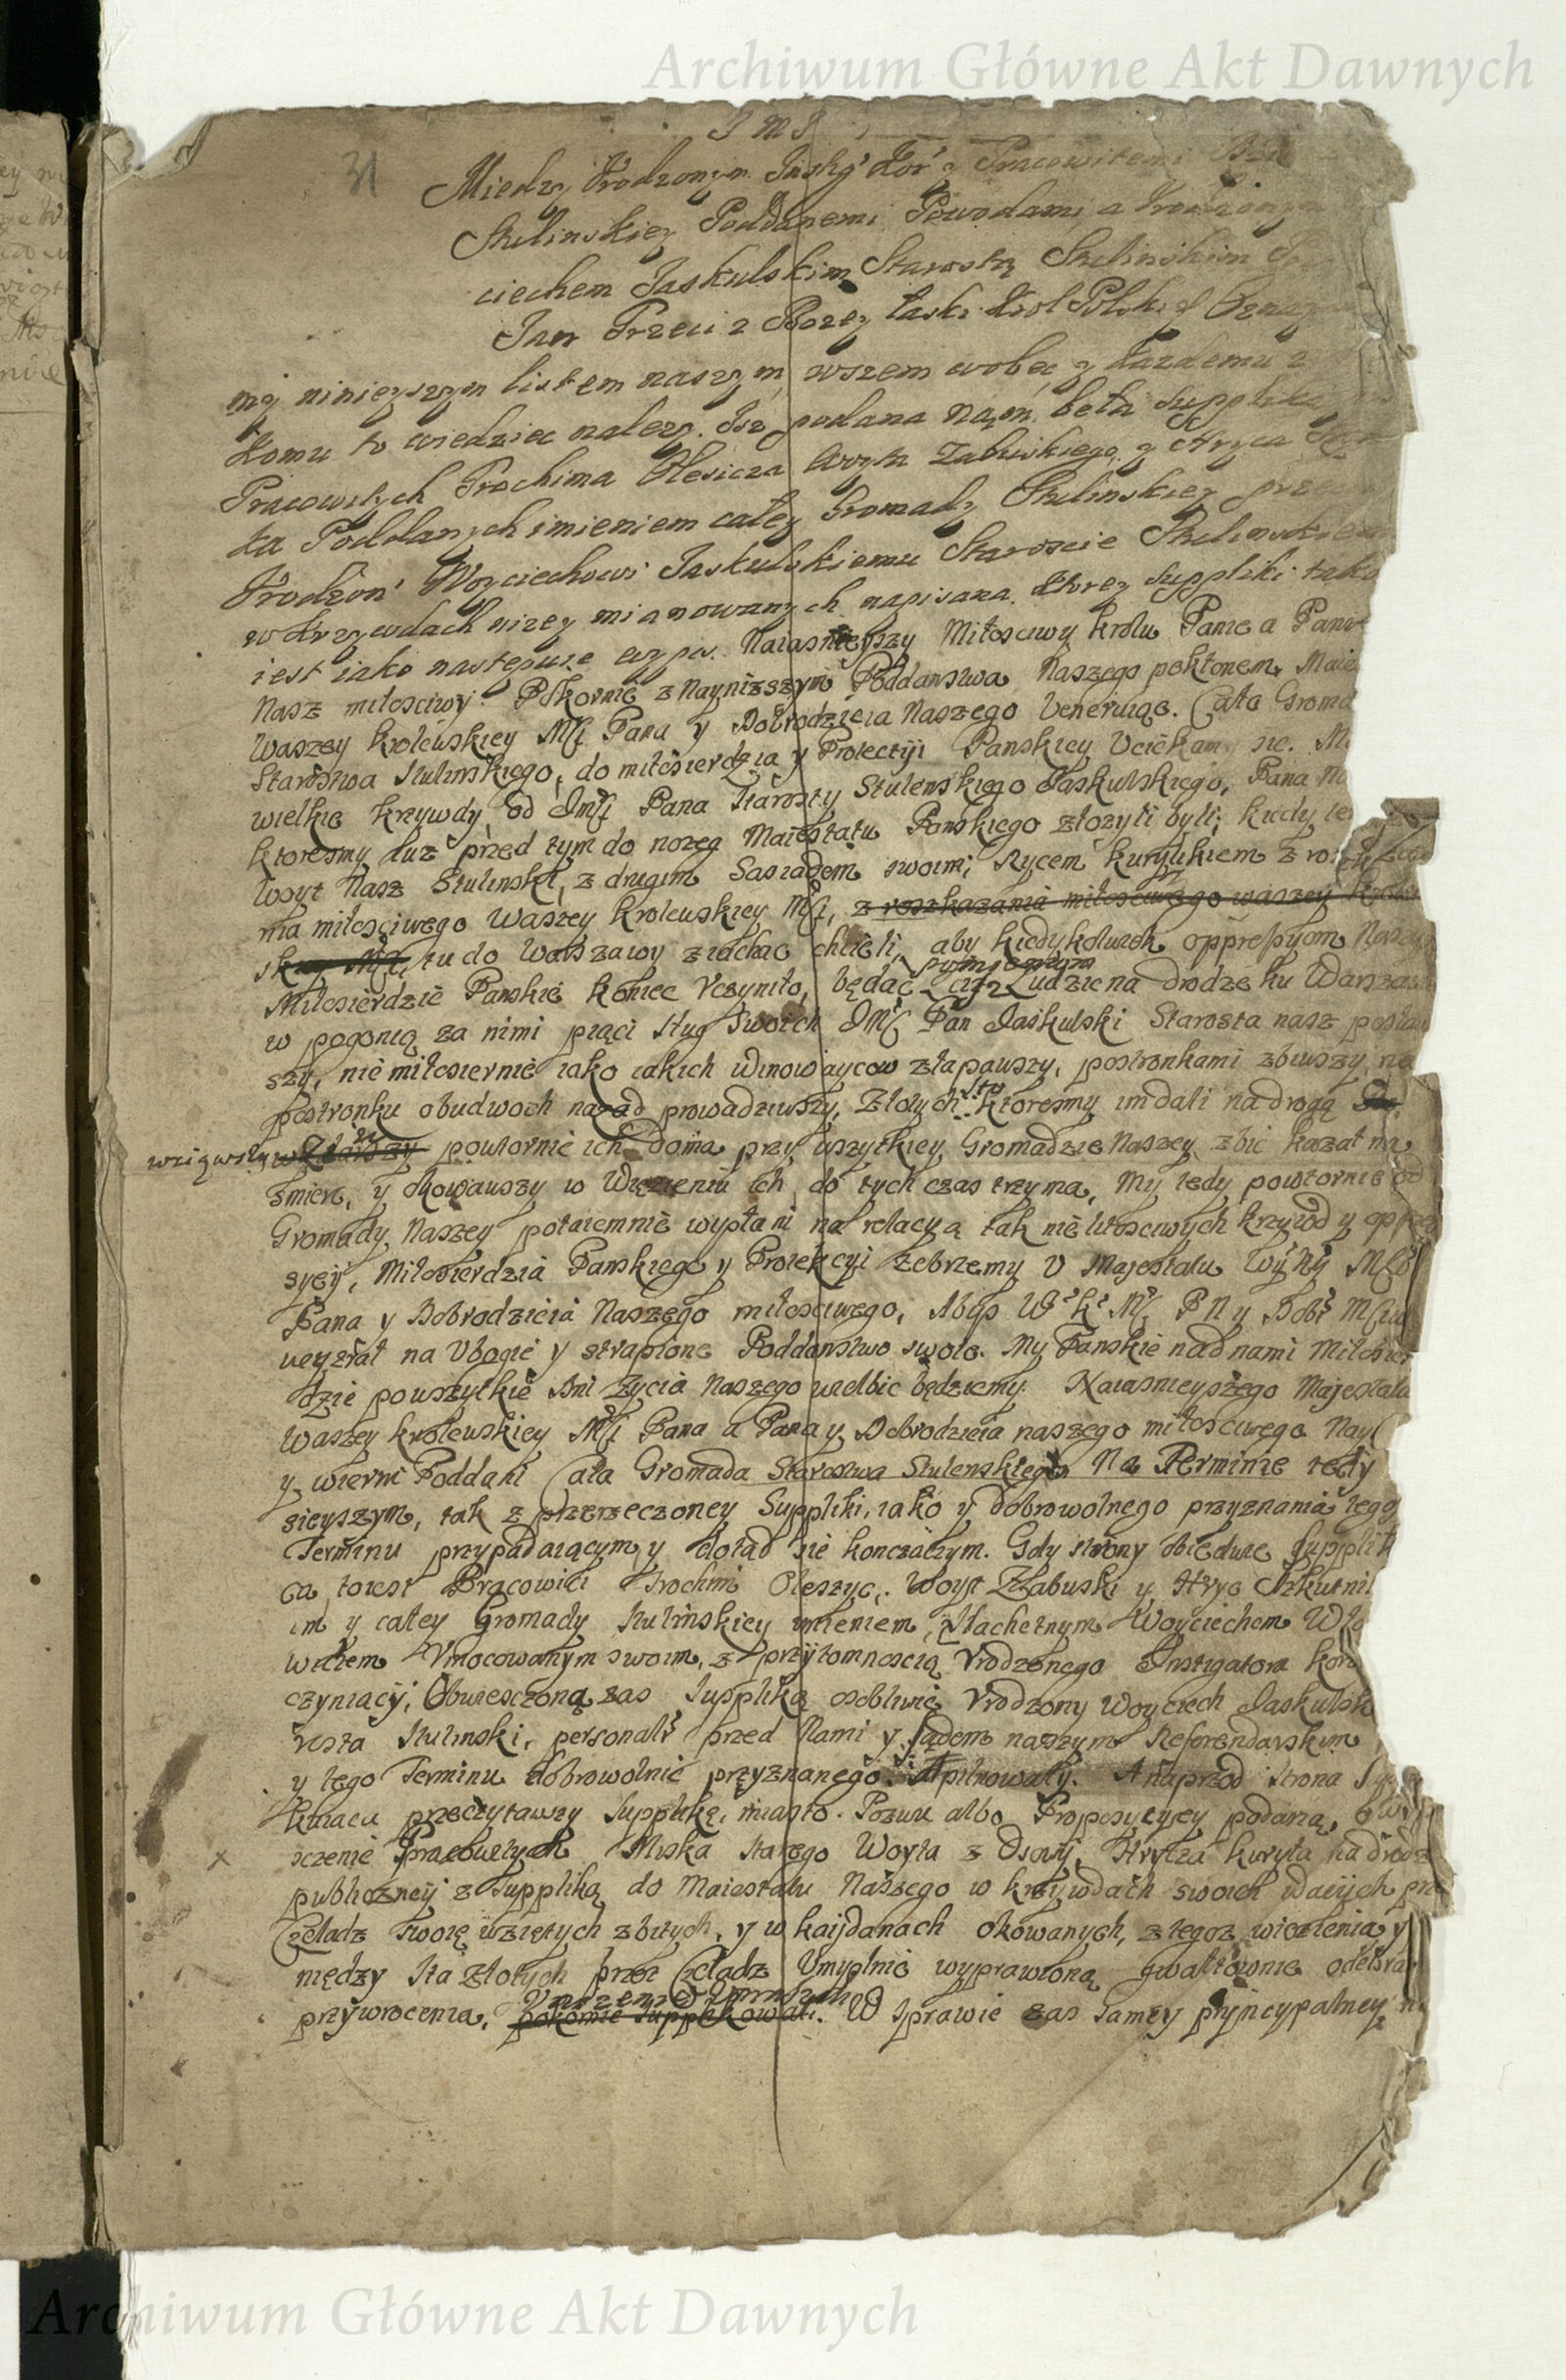 Archiwum Główne Akt Dawnych
31
J M J
Miedzy Vrodzonym Instyg Kor y Pracowitemi
Stulinskiey Poddanemi Powodami a Vrodzonym
ciechem Jaskulskim Starostą Stulinskim
Jan Trzeci z Bozey Łaski Krol Polski
my ninieyszym listem naszym wszem wobec y kazdemu z
komu to wiedziec nalezy. Isz podana nam beła Supplika
Pracowitych Trochima Olesicza Woyta Zabuskiego y Hryca
ka Poddanych imieniem całey Gromady Stulinskiey przeciw
Vrodzon Woyciechowi Jaskulskiemu Staroscie Stulinskiem
w krzywdach nizey mianowanych napisana. ktorey suppliki tako
iest iako nastepuie Naiasnieyszy Miłosciwy Krolu Panie a Panie
Nasz miłosciwy. Pokornie z Naynizszym Poddanstwa Naszego pokłonem, Maies
Waszey krolewskiey Msci Pana y Dobrodzieia Naszego Veneruiąc. Cała Groma
Starostwa Stulinskiego, do miłosierdzia y Protectiji Panskiey Vciekamy sie. Ma
wielkie krzywdy od Jmsci Pana Starosty Stulenskiego Jaskulskiego, Pana Na
ktoresmy iuz przed tym do nozeg Maiestatu Panskiego złozyli byli, kiedy te
Woyt Nasz Stulinski, z drugim Sasiadem swoim, Rycem kurylukiem z ros
nia miłosciwego Waszey krolewskiey Msci, z roszkazania miłosciwego waszey krolew
skiey Msci, tu do Warszawy ziachac chcieli, aby kiedykolwiek oppressyom Naszym
Miłosierdzie Panskie koniec Vczyniło, będąc ciz pomienieni Ludzie na drodze ku Warszawie
w pogonią za nimi pięci sług swoich JMsc Pan Jaskulski Starosta nasz posław
szy, nie miłosiernie iako iakich winowaycow złapawszy, postronkami zbiwszy, na
postronku obudwoch nazad prowadziwszy, Złotych sto ktoresmy im dali na drogą
wziąwszy powtornie ich doma przy wszytkiey Gromadzie Naszey zbic kazał na
smierc, y okowawszy w Więzieniu ich do tych czas trzyma, My tedy powtornie od
Gromady Naszey potaiemnie wysłani na relacyą tak nie litosciwych krzywd y oppre
syey, Miłosierdzia Panskiego y Protekcyi zebrzemy V Majestatu
Pana y Dobrodzieia Naszego miłosciwego, Abys
weyzrał na Vbogie y strapione Poddanstwo swoie. My Panskie nad nami Miłosier
dzie powszytkie Dni zycia Naszego wielbic będziemy. Naiasnieyszego Majestatu
Waszey krolewskiey Msci Pana a Pana y Dobrodzieia naszego miłosciwego Nay
y wierni Poddani Cała Gromada Starostwa Stulenskiego Na Terminie tedy
sieyszym, tak z przerzeczoney Suppliki, iako y dobrowolnego przyznania tego
Terminu przypadaiącym y dotąd sie konczącym. Gdy strony obiedwie Supplik
ca toiest Pracowici Trochim Oleszyc, Woyt Zabuski y Hryc Szkutnik
im y całey Gromady Stulinskiey imieniem, Szlachetnym Woyciechem Wła
wiczem Vmocowanym swoim, z przytomnoscią Vrodzonego Instigatora koro
czyniącÿ, Obwiesczoną zas Suppliką osobliwie Vrodzony Woyciech Jaskulski
rosta Stulinski, personalr przed Nami y Sądem naszym Referendarskim
y tego Terminu dobrowolnie przyznanego pilnowały. A naprzod Strona
kuiąca przeczytawszy Supplikę, miasto Pozwu albo Propositycyey podaną,
sczenie Pracowitych Miska starego Woyta z Osowy, Hrytza kuryła na drodze
publiczney z suppliką do Maiestatu Naszego w krzywdach swoich idacych prze
Czeladz swoię wziętych zbitych, y w kaydanach okowanych, z tegoz wiezienia y
między sta złotych przez Czeladz Vmyslnie wyprawioną gwałtownie odebran
przywrocenia, pokornie supplikowali. W sprawie zas samey pryncypalney
Archiwum Główne Akt Dawnych